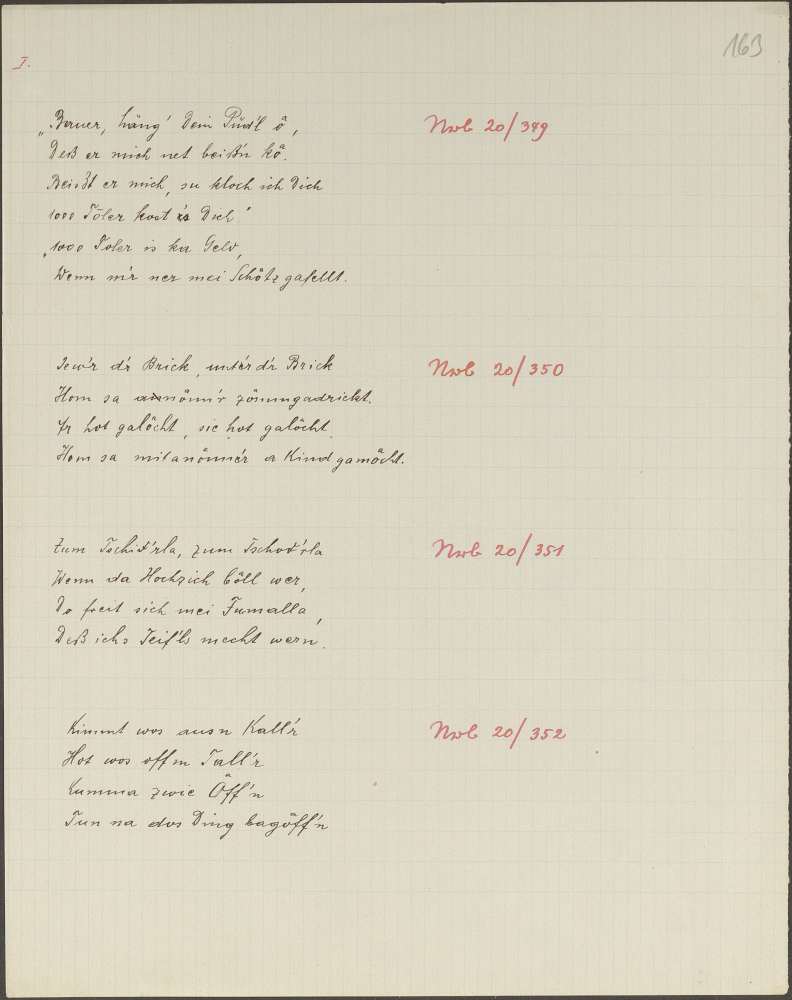 163
I.
„Bauer, häng' Dein Püd'l ô,
Deß er mich net beiß'n kô.
Beißt er mich, su kloch ich Dich
1000 Toler kost is Dich"
„1000 Toler is ka Geld,
Wenn m'r ner mei Schôtz gafellt.
Nwb 20/349
Iew'r d'r Brick, unt'r d'r Brick
Hom sa zômmgadrickt.
Er hot galôcht, sie hot galôcht
Hom sa mitanônn'r a Kind gamôcht.
Nwb 20/350
Zum Tschid'rla, zum Tschod'rla
Wenn da Hochzich böll wer,
Do freit sich mei Fumalla,
Deß ichs Teif'ls mecht wern.
Nwb 20/351
Kimmt wos ausn Kall'r
Hot wos offm Tall'r
Kumma zwie Öff'n
Tun na dos Ding bagöff'n
Nwb 20/352